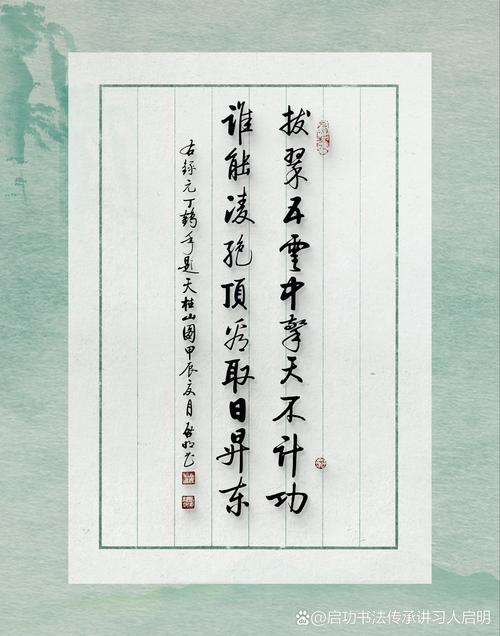 拔翠五云中擎天不计功
谁能凌绝顶看取日昇东
右録元丁鹤年题天柱山图甲辰夏月启明书
@启功书法传承讲习人启明